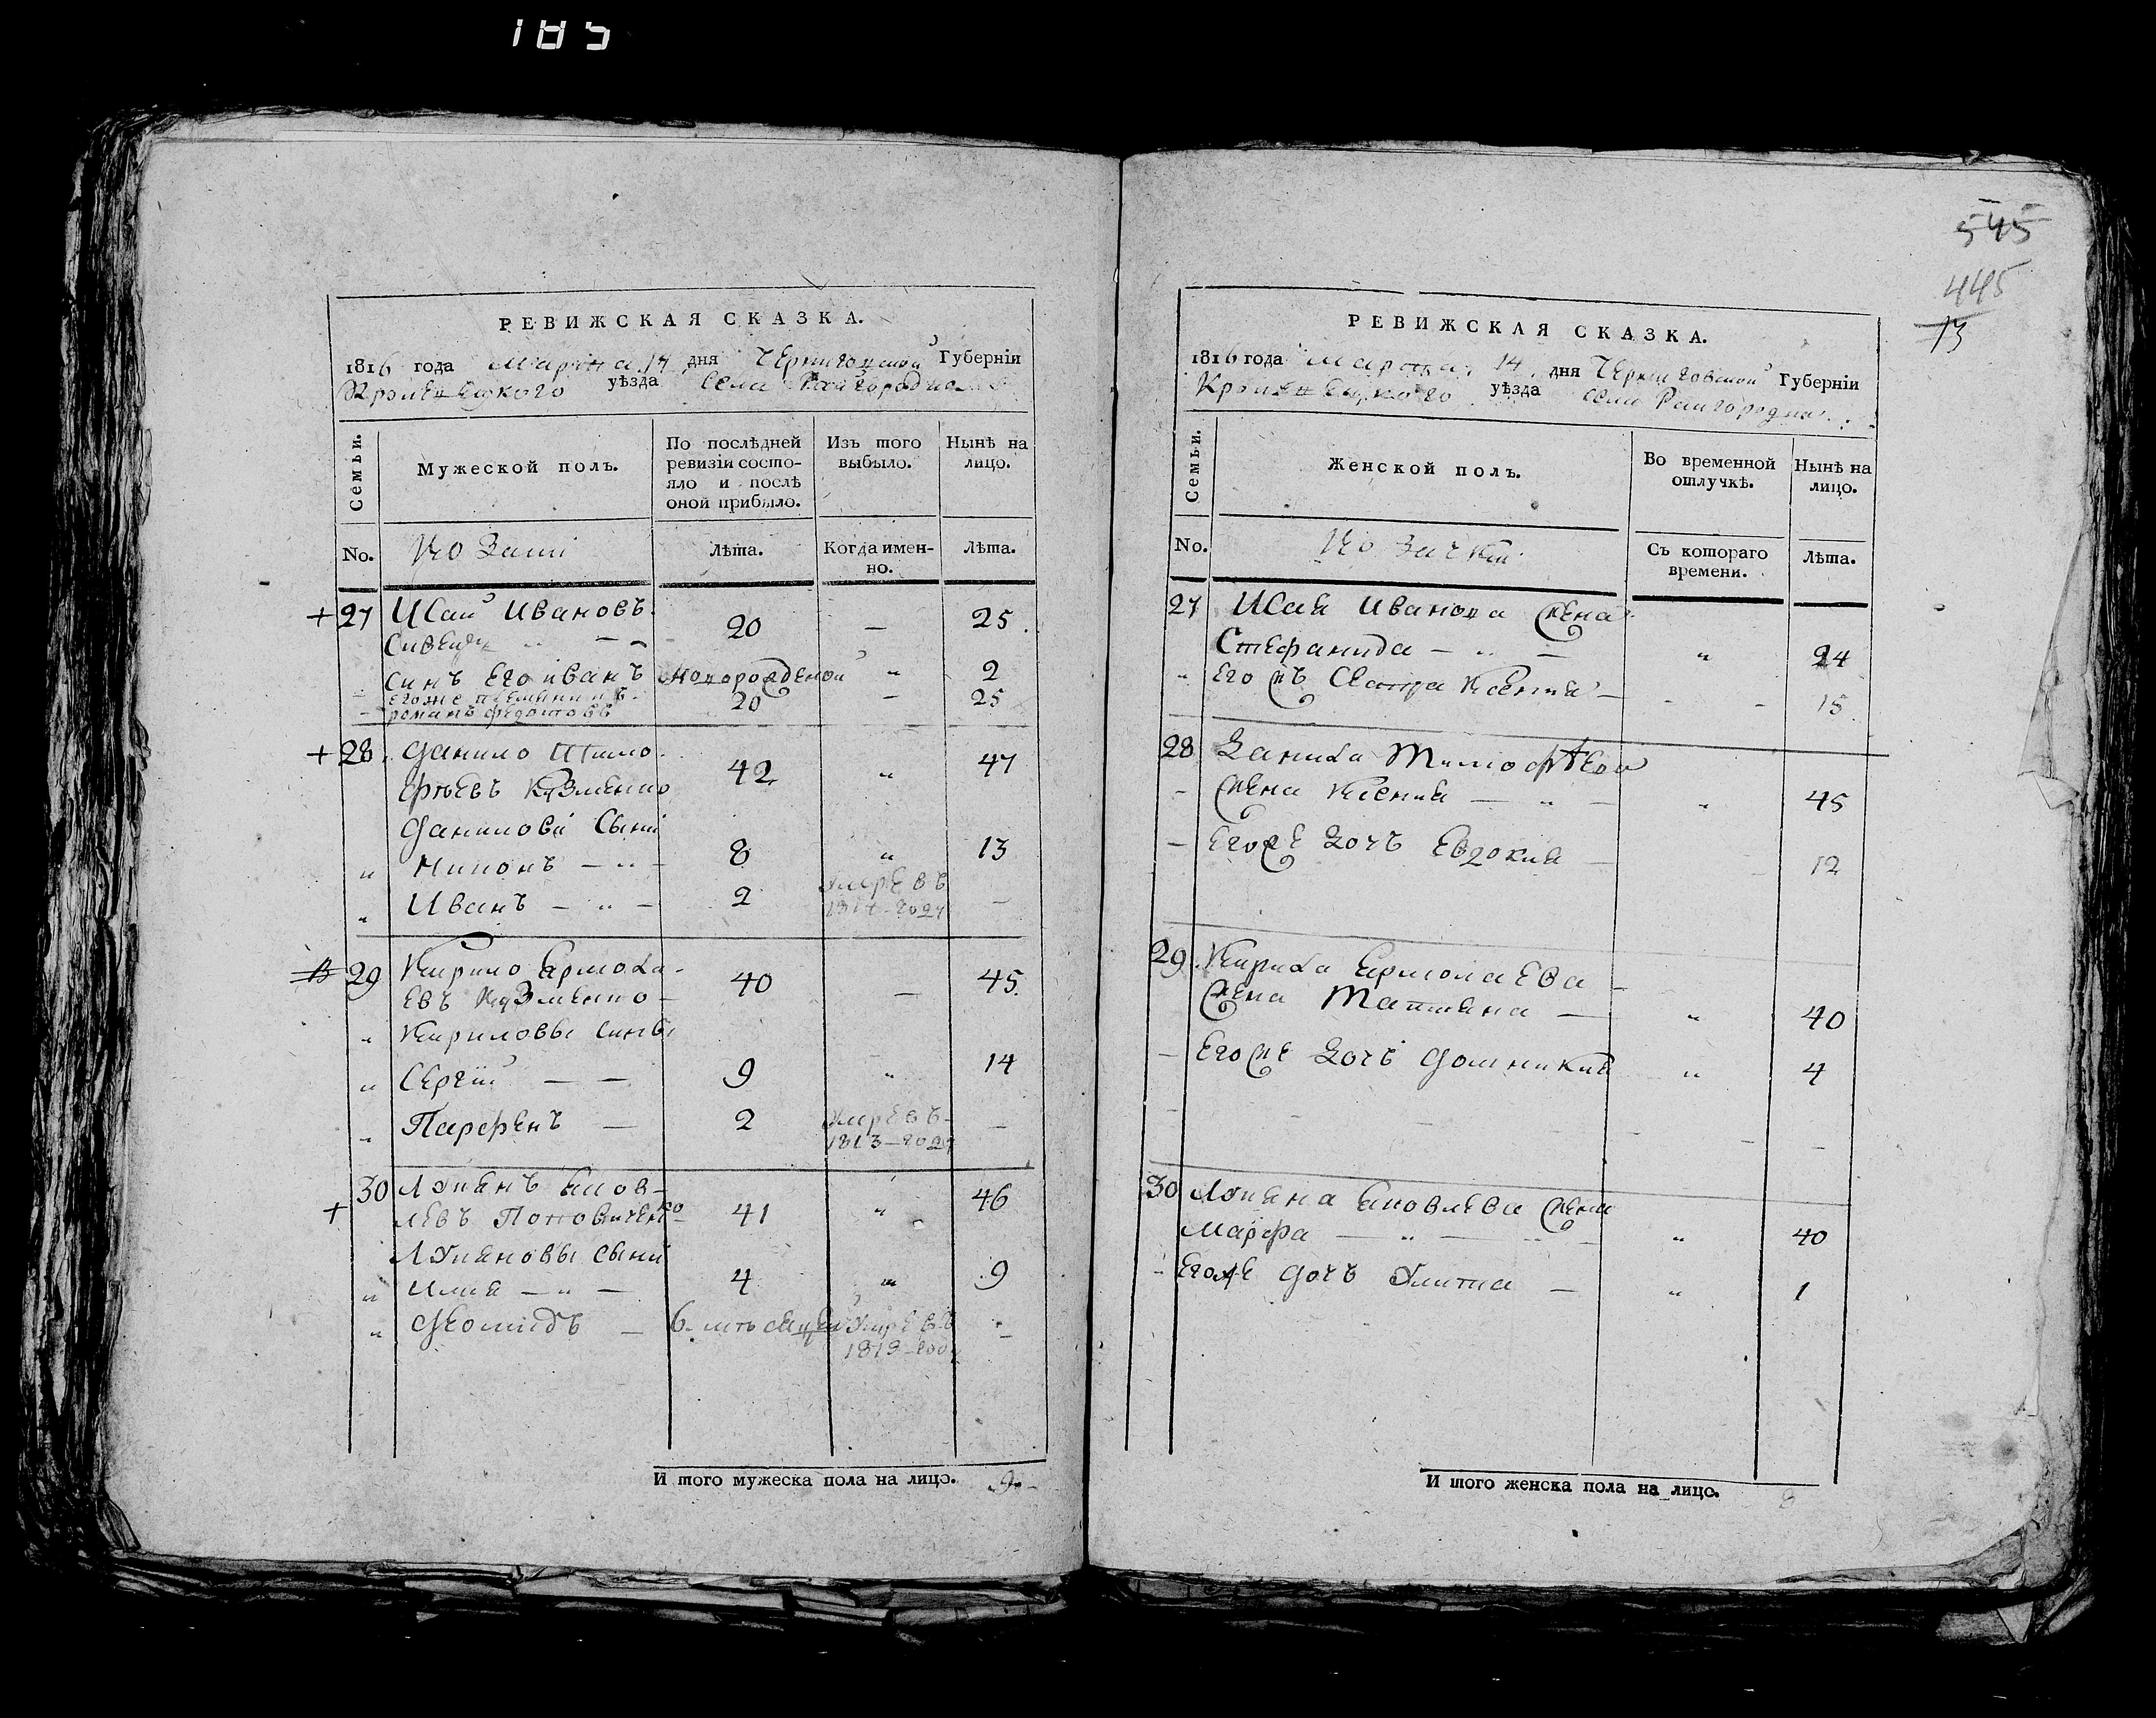 185
545
445
13
РЕВИЖСКАЯ СКАЗКА.
1816 года Марта 14 дня Черниговской Губерніи
Кролевецкого уѣзда Села Райгородка
Семьи.
Мужеской полъ.
По послѣдней ревизіи состо-
яло и послѣ
оной прибыло.
Изъ того
выбыло.
Нынѣ на
лицо.
No.
Козаки
Лѣта.
Когда имен-
но.
Лѣта.
+ 27 Исай Ивановъ 20 — 25
синъ его иванъ новорожденой " 2
егоже племянникъ
романъ федотовъ 20 — 25
+ 28 Данило Тимо-
фѣевъ Кузменко 42 " 47
Даниловы Сыни
" Нипонъ — " — 8 " 13
" Иванъ — " — 2 умревъ —
1814 году
29 Кирило Ярмола-
евъ Кузменко — 40 — 45
" Кириловы сины
" Сергій — — 9 " 14
" Парфенъ — 2 умревъ —
1813 — году
+ 30 Лукянъ Яков-
левъ Поповиченко 41 " 46
Лукяновы сыни
" Илия — " — 4 " 9
" Феомидъ — 6-ть месяцей Умревъ —
И того мужеска пола на лицо. 9
РЕВИЖСКАЯ СКАЗКА.
1816 года Марта 14 дня Черниговской Губерніи
Кролевецкого уѣзда Села Райгородка
Семьи.
Женской полъ.
Во временной
отлучкѣ.
Нынѣ на
лицо.
No.
Козачки
Съ котораго
времени.
Лѣта.
27 Исая Иванова жена
Стефанида — " — " 24
" Его жъ Сестра Ксения — 15
28 Данила Тимофѣева
— жена Ксения — " — " 45
— Егоже Дочъ Евдокия — 12
29 Кирила Ярмолаева —
жена Татияна — " 40
— Егоже Дочъ Домникия " 4
30 Лукяна Яковлева жена
Марфа — " — " 40
" Егоже Дочъ Улита — " 1
И того женска пола на лицо. 8